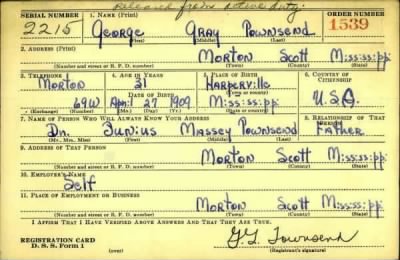 Released from active duty.
SERIAL NUMBER 1. NAME (Print) ORDER NUMBER
2215 George Gray Townsend 1539
(First) (Middle) (Last)
2. ADDRESS (Print)
Morton Scott Mississippi
(Number and street or R. F. D. number) (Town) (County) (State)
3. TELEPHONE 4. AGE IN YEARS 5. PLACE OF BIRTH 6. COUNTRY OF CITIZENSHIP
Morton 31 Harperville
DATE OF BIRTH
69W April 27 1909 Mississippi U.S.A.
(Exchange) (Number) (Mo.) (Day) (Yr.) (State or country)
7. NAME OF PERSON WHO WILL ALWAYS KNOW YOUR ADDRESS 8. RELATIONSHIP OF THAT PERSON
Dr. Junius Massey Townsend Father
(Mr., Mrs., Miss) (First) (Middle) (Last)
9. ADDRESS OF THAT PERSON
Morton Scott Mississippi
(Number and street or R. F. D. number) (Town) (County) (State)
10. EMPLOYER'S NAME
Self
11. PLACE OF EMPLOYMENT OR BUSINESS
Morton Scott Mississippi
(Number and street or R. F. D. number) (Town) (County) (State)
I AFFIRM THAT I HAVE VERIFIED ABOVE ANSWERS AND THAT THEY ARE TRUE.
REGISTRATION CARD
D. S. S. Form 1 (over) G. G. Townsend
(Registrant's signature)